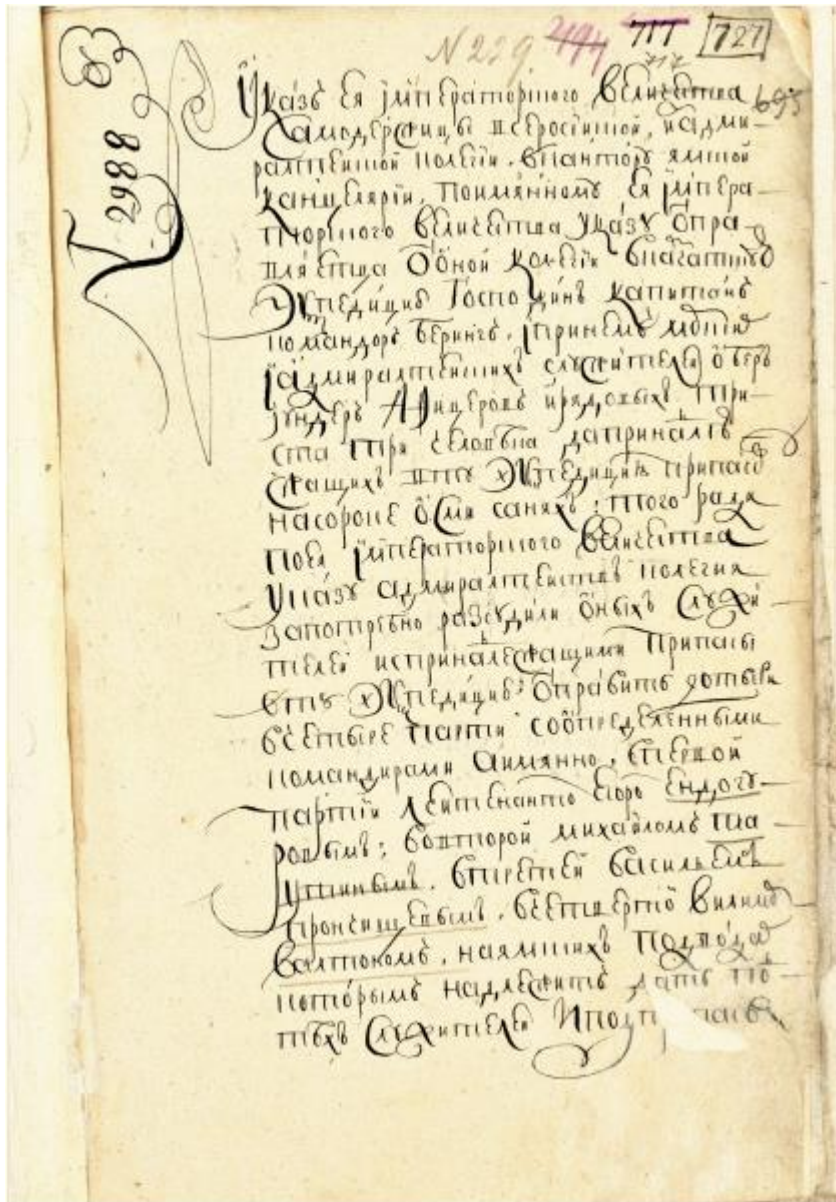 N 229 494 717 727
717
N 2988
Указъ Ея јмператорского Величества 693
Самодержицы всеросискои, изадми-
ралтеискои колегии. вкантору ямской
канцелярии, поимянному ея јмпера-
торского величества указу ѿпра-
вляетца ѿоной колегіи вкамчатскую
Экспедицию Господинъ капитанъ
командоръ Берингъ, јпринемъ
јадмиралтеискихъ служителей ѿберъ
јундеръ Афицеровъ ирядовыхъ три-
ста три человека дапринадле
жащихъ вту Экспедицию припасо
насороке ѿсми саняхъ; того ради
поея јмператорского величества
указу адмиралтеиствъ колегия
запотребно разсудили ѿныхъ служи-
телеи испринадлежащими припасы
вту Экспедицию ѿправить
вчетыре партіи соѿпределенными
командирами аимянно, впервой
партіи леитенанто Егоро Ендогу-
ровымъ; вовторой михаиломъ пла-
утинымъ, втретей васильемъ
прончищевымъ, вчетвертой вилимо
валтономъ, наямскихъ подвода
которымъ надлежитъ дать по
тѣхъ служителей